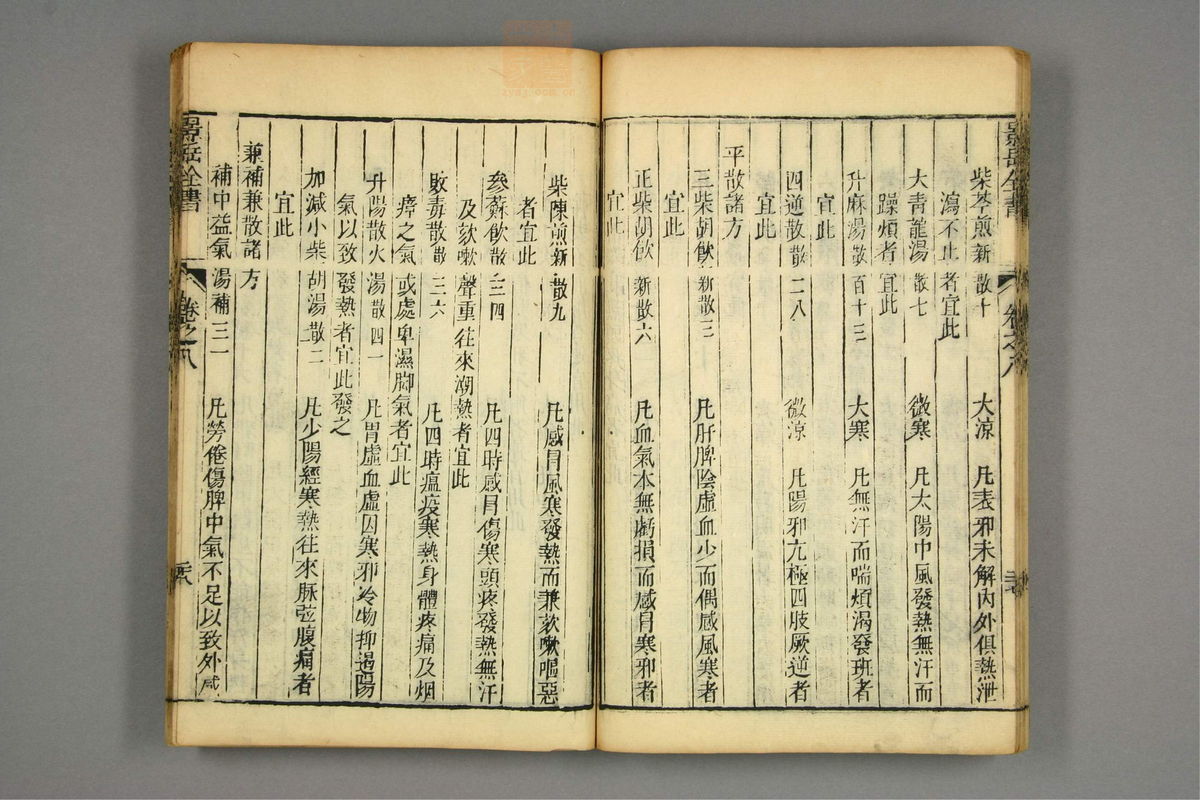 景岳全書
卷之八
柴芩煎 新散十 大涼 凡表邪未解內外俱熱泄
瀉不止者宜此
大青龍湯 散七 微寒 凡太陽中風發熱無汗而
躁煩者宜此
升麻湯 散百十三 大寒 凡無汗而喘煩渴發班者
宜此
四逆散 散二八 微涼 凡陽邪亢極四肢厥逆者
宜此
平散諸方
三柴胡飲 新散三 凡肝脾陰虛血少而偶感風寒者
宜此
正柴胡飲 新散六 凡血氣本無虧損而感冒寒邪者
宜此
柴陳煎 新散九 凡感冒風寒發熱而兼欬嗽嘔惡
者宜此
參蘇飲 散三四 凡四時感冒傷寒頭疼發熱無汗
及欬嗽聲重往來潮熱者宜此
敗毒散 散三六 凡四時瘟疫寒熱身體疼痛及烟
瘴之氣或處卑濕脚氣者宜此
升陽散火湯 散四一 凡胃虛血虛因寒邪冷物抑遏陽
氣以致發熱者宜此發之
加減小柴胡湯 散二 凡少陽經寒熱往來脉弦腹痛者
宜此
兼補兼散諸方
補中益氣湯 補三一 凡勞倦傷脾中氣不足以致外感
景岳全書
卷之八